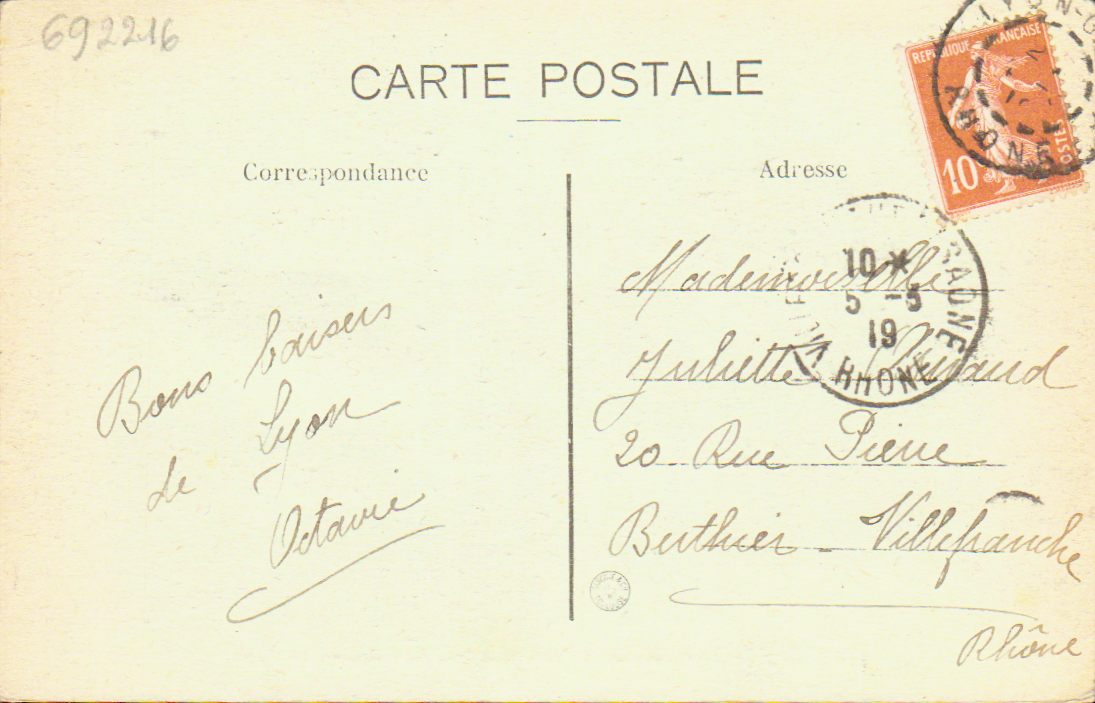 692216
CARTE POSTALE
Correspondance
Adresse
RÉPUBLIQUE FRANÇAISE
POSTES
10
LYON-G
RHONE
SAÔNE
10 *
5 -5
19
RHONE
Bons baisers
de Lyon
Octavie
Mademoiselle
Juliette
20 Rue Pierre
Berthier - Villefranche
Rhône